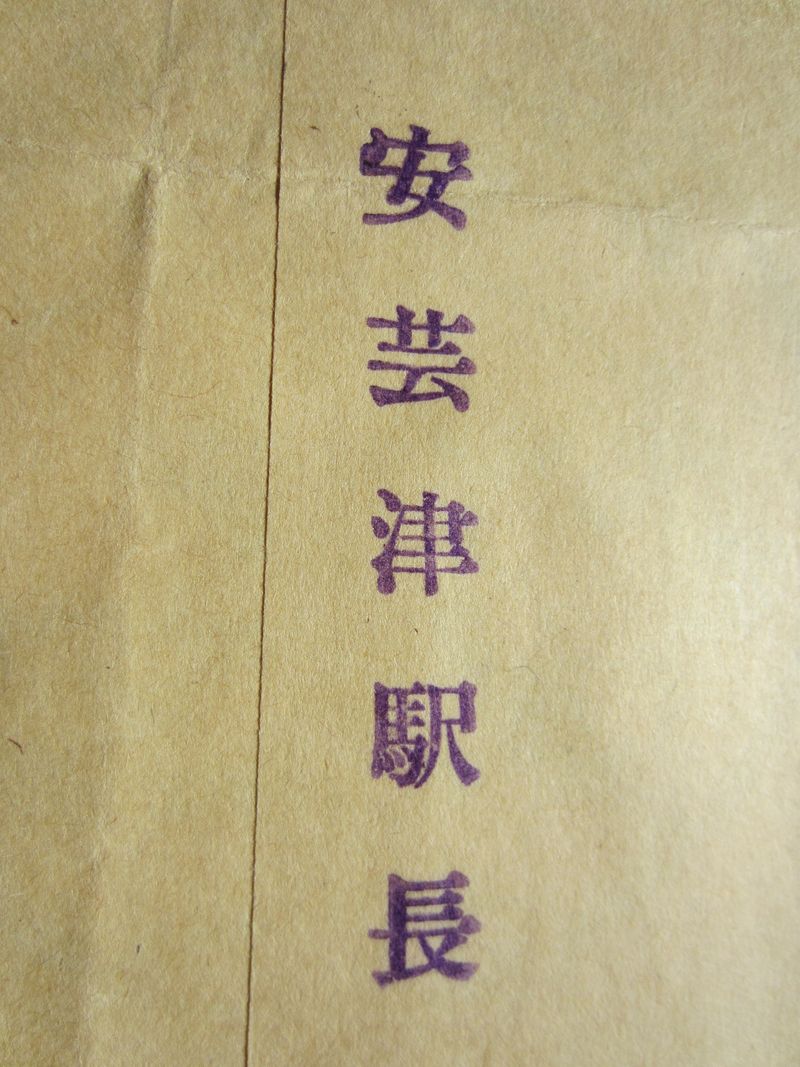 安芸津駅長